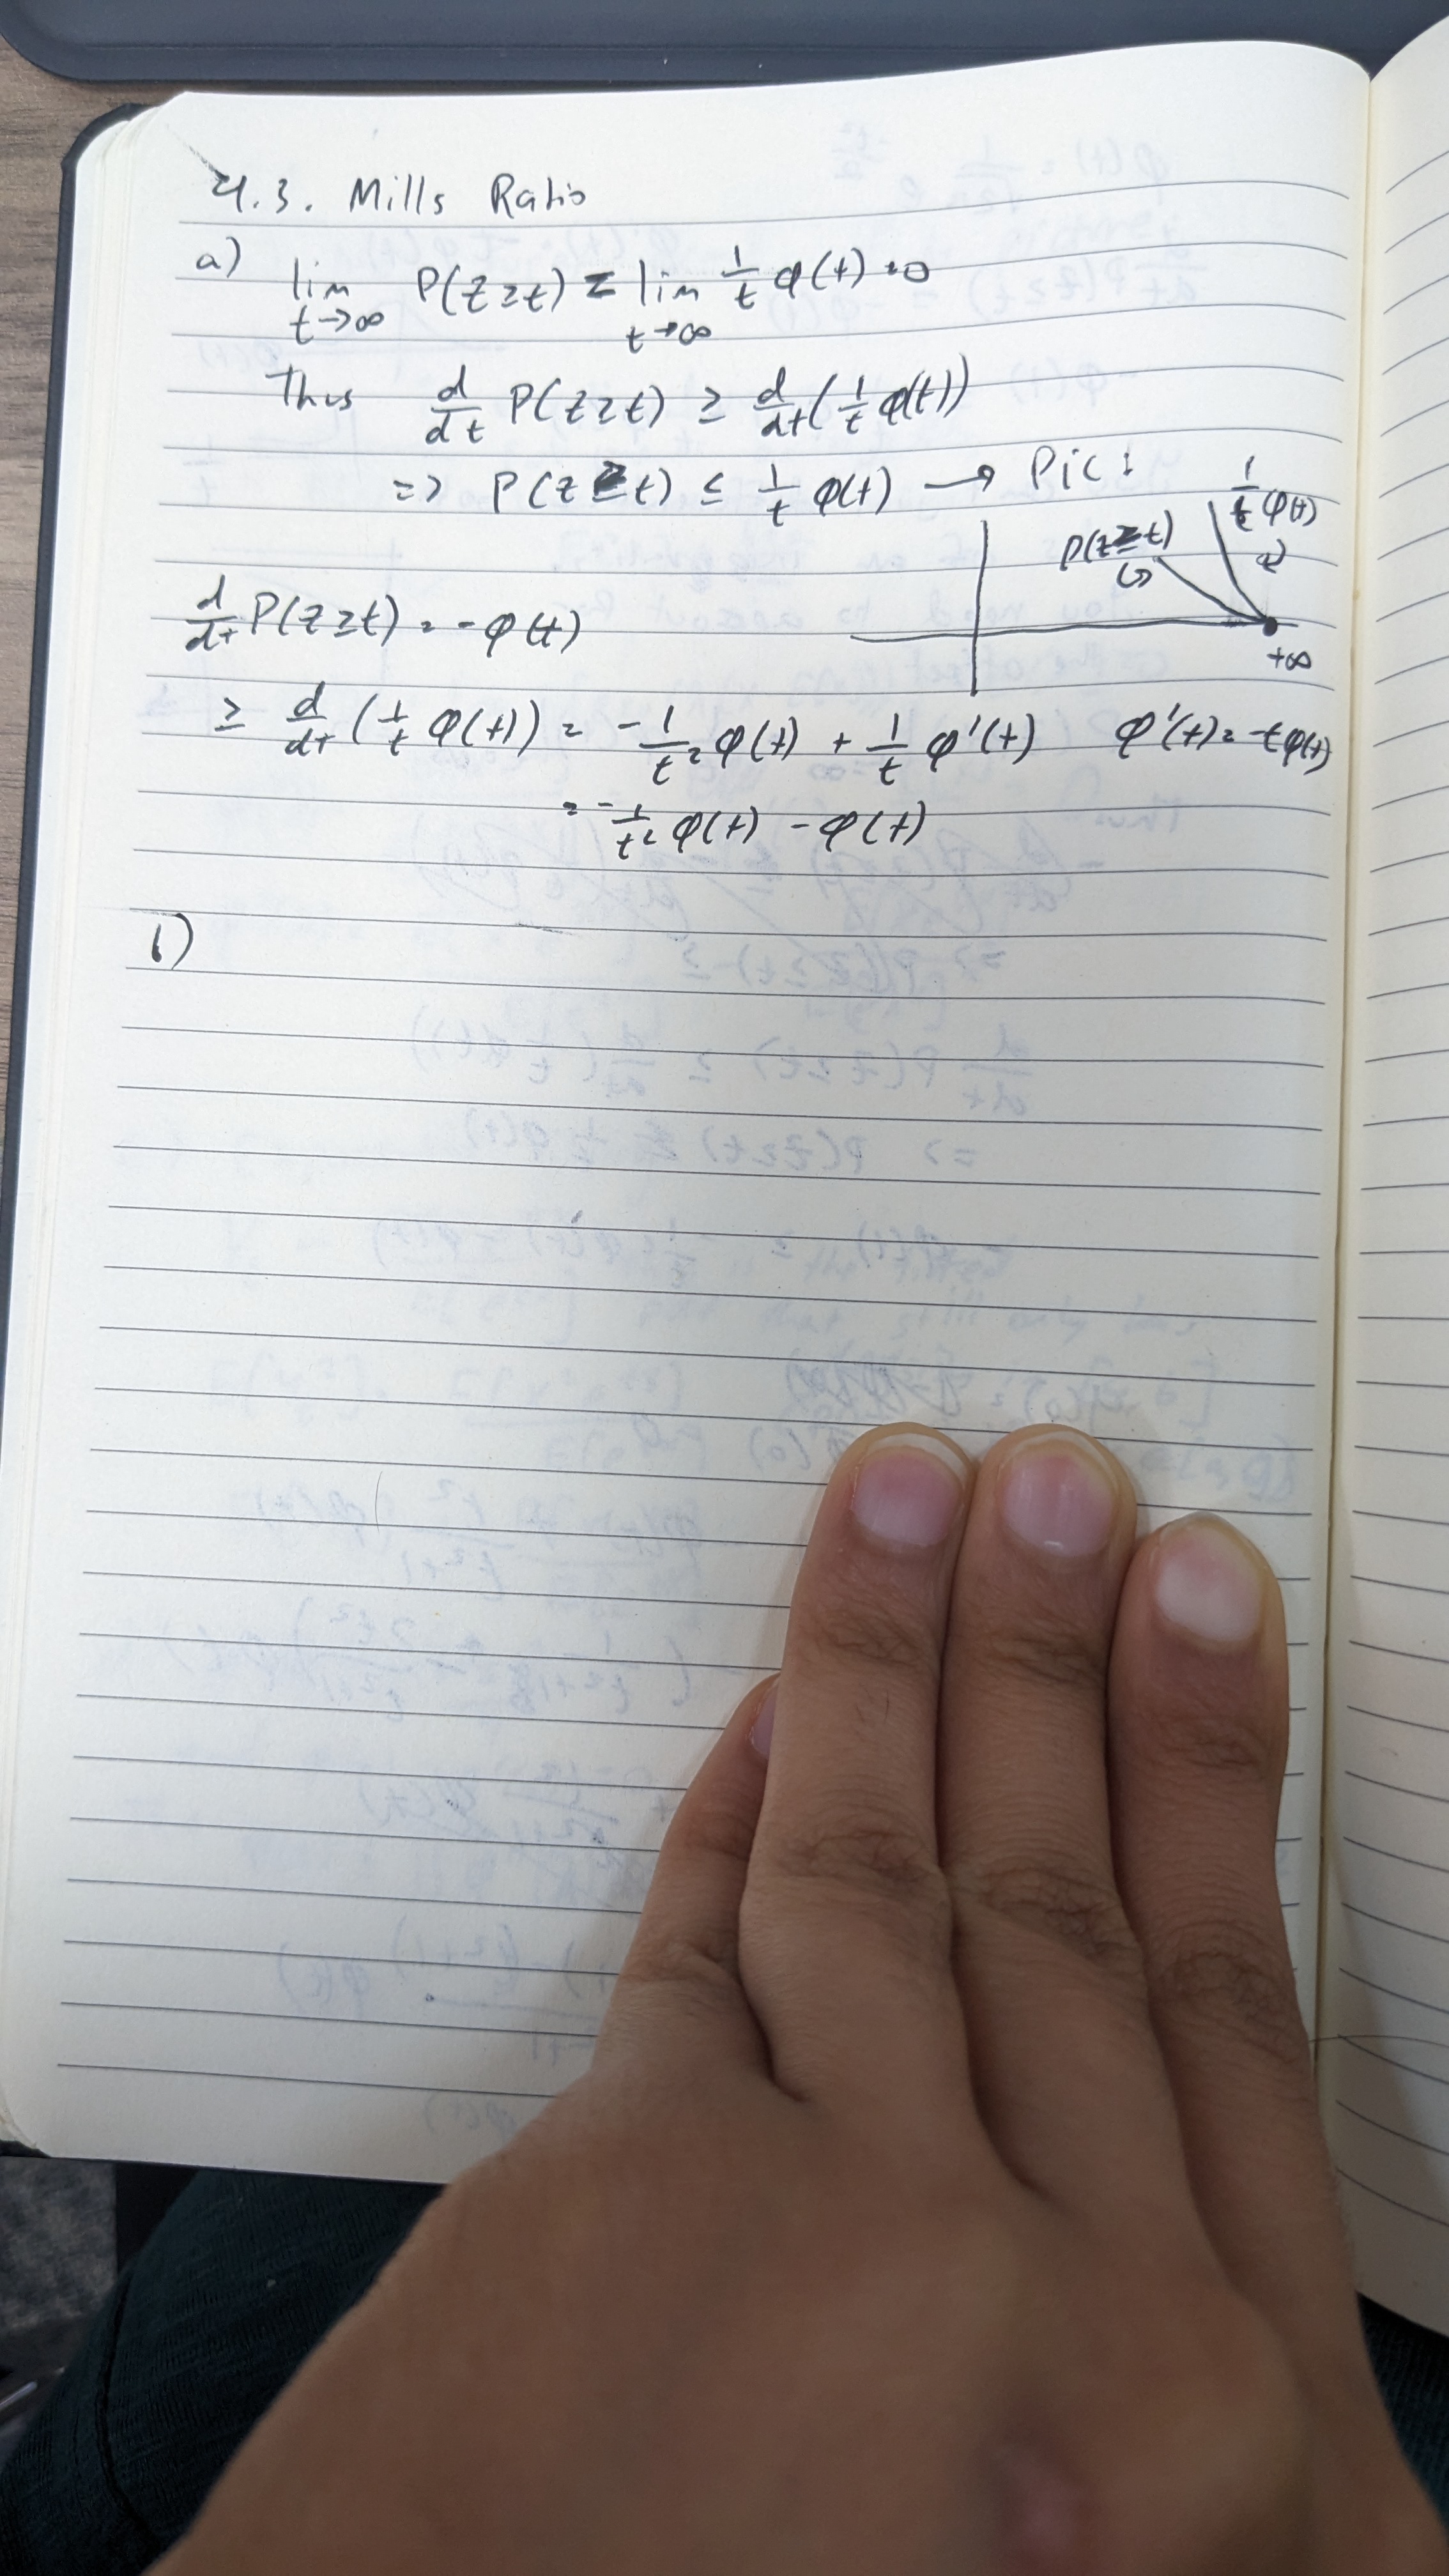 4.3. Mills Ratio
a) lim t→∞ P(Z≥t) = lim t→∞ 1/t φ(t) = 0
Thus d/dt P(Z≥t) ≥ d/dt (1/t φ(t))
=> P(Z≥t) ≤ 1/t φ(t) → Pic:
1/t φ(t)
P(Z≥t)
+∞
d/dt P(Z≥t) = -φ(t)
≥ d/dt (1/t φ(t)) = -1/t² φ(t) + 1/t φ'(t) φ'(t) = -tφ(t)
= -1/t² φ(t) - φ(t)
1)